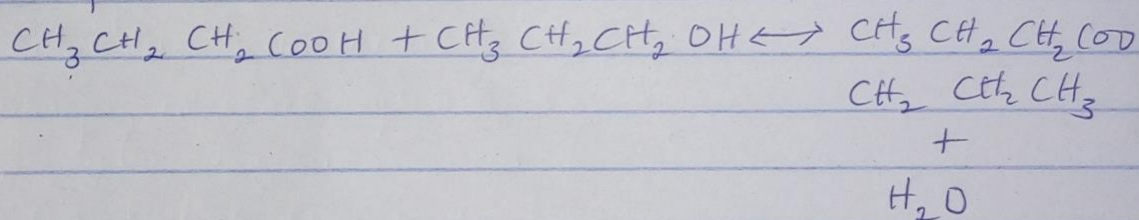 CH₃CH₂ CH₂ COOH + CH₃ CH₂CH₂ OH ⟷ CH₃ CH₂ CH₂ COO
CH₂ CH₂ CH₃
+
H₂O